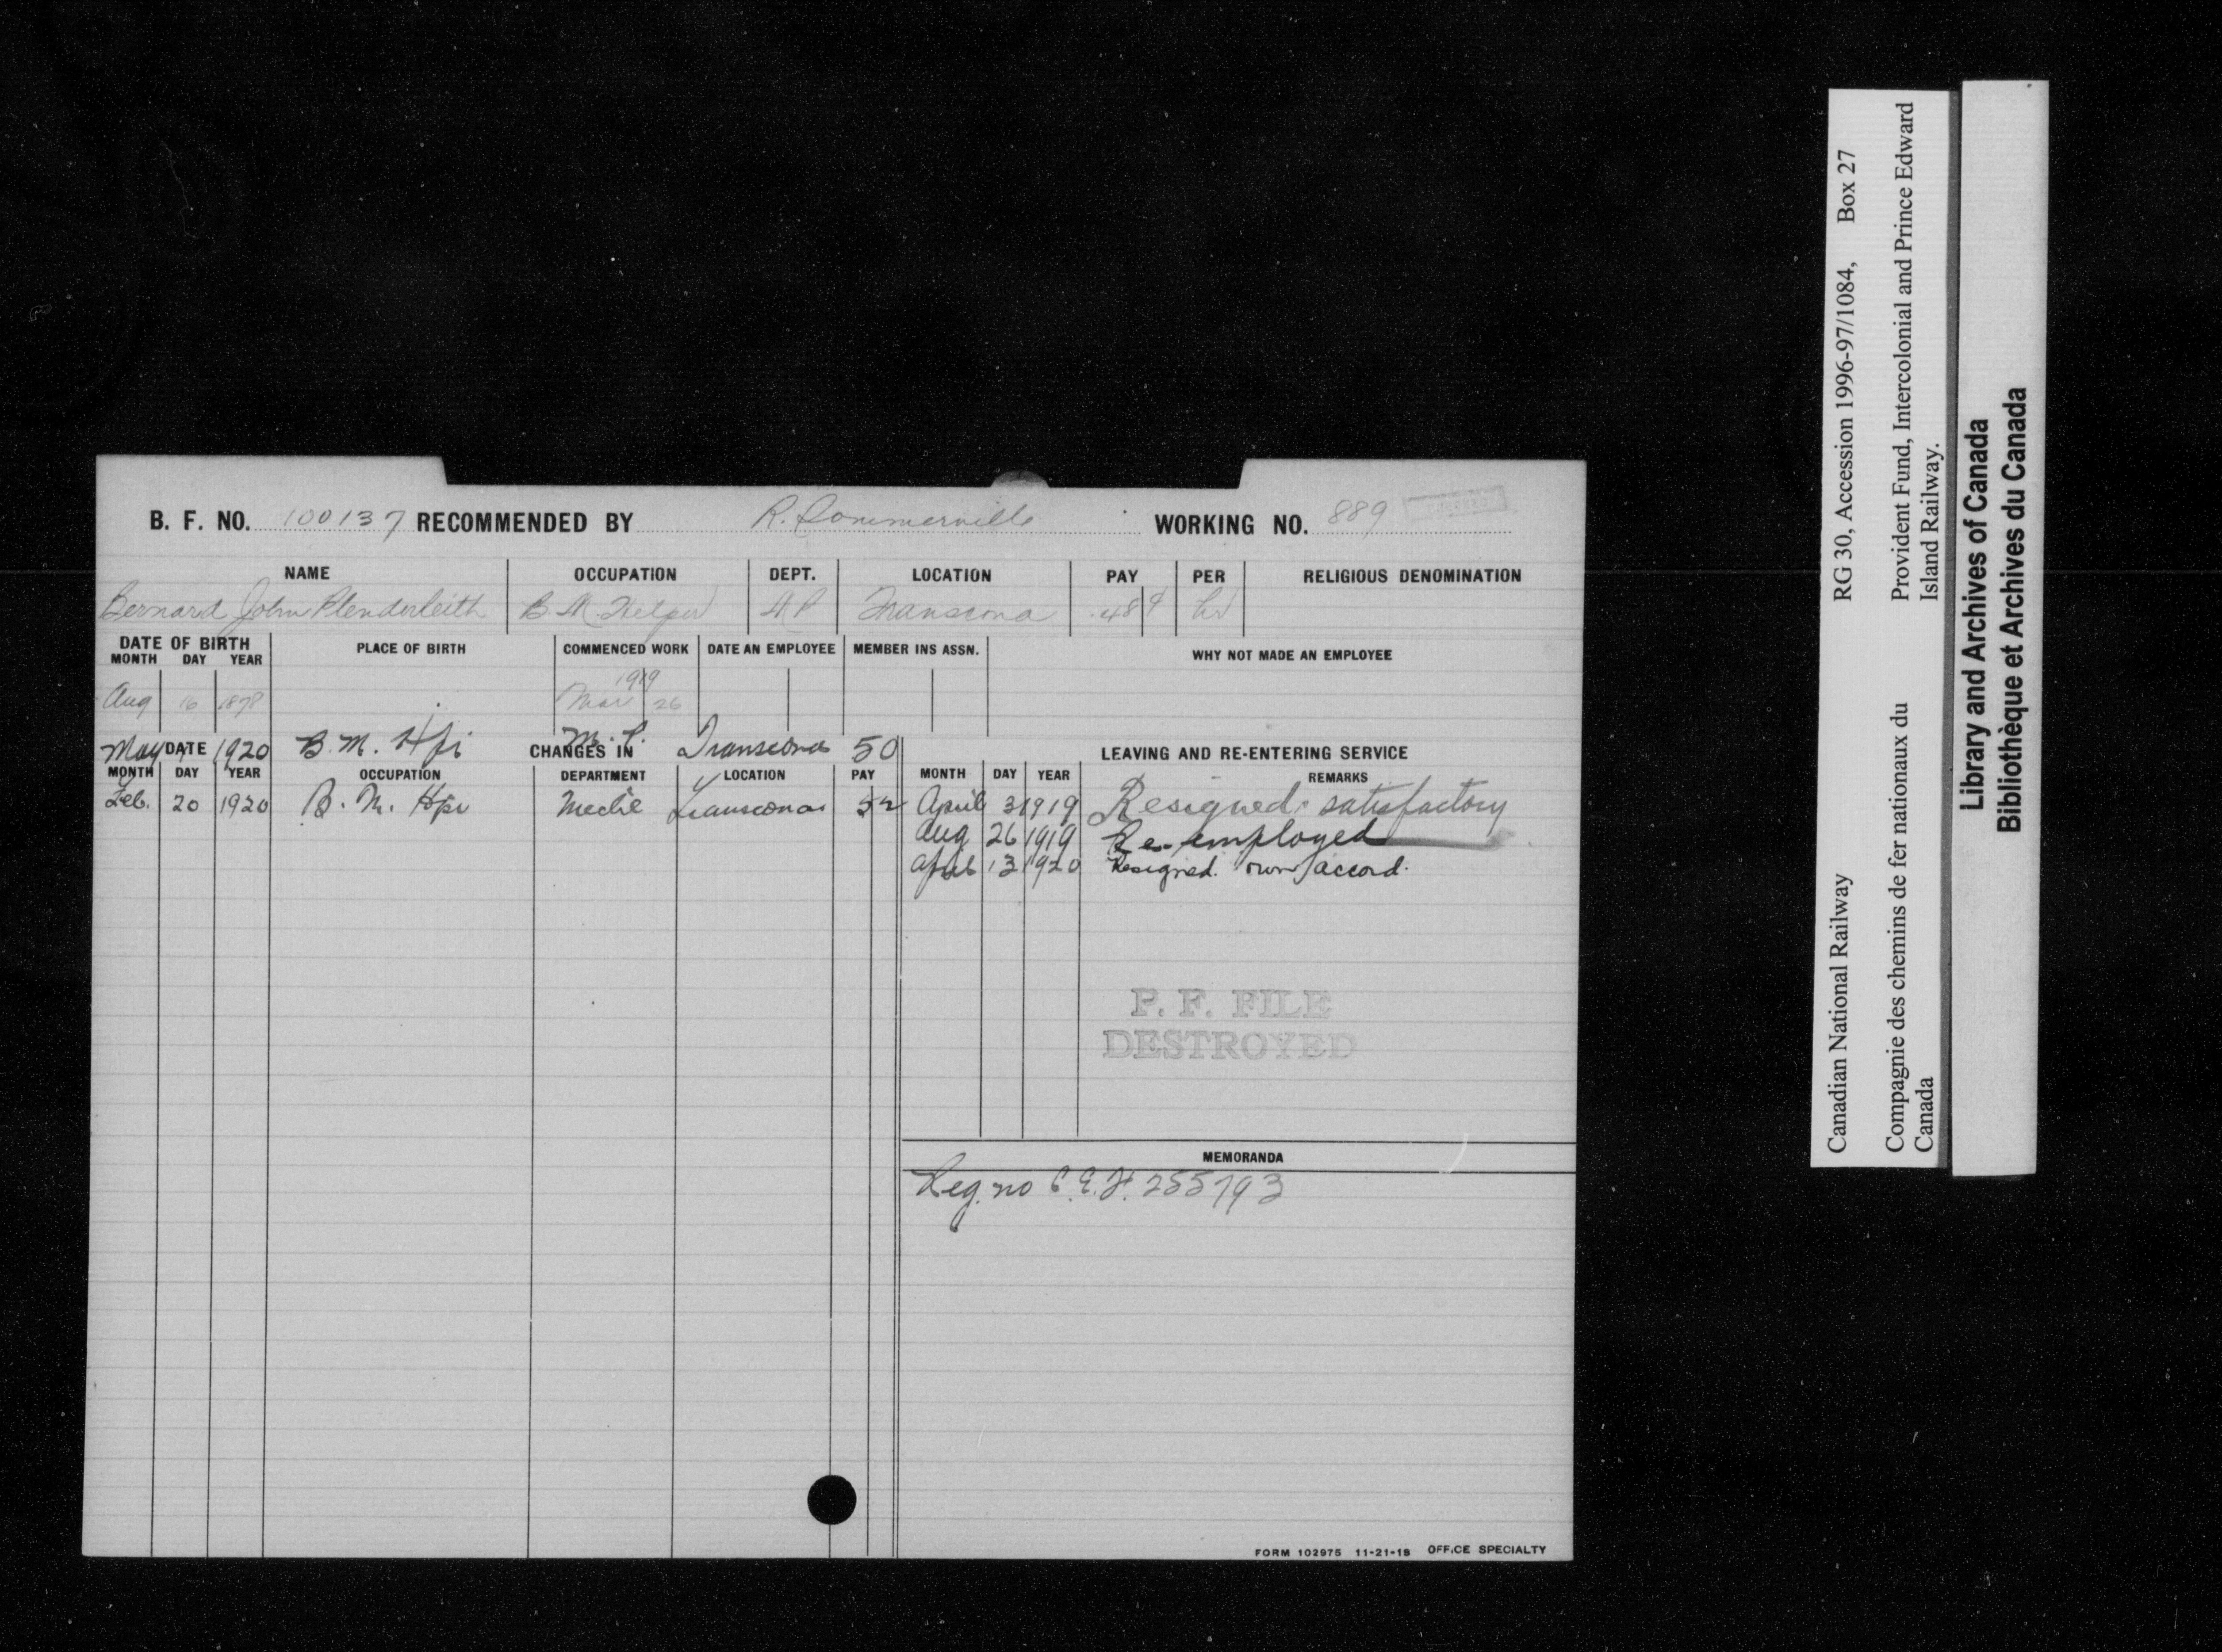 B. F. NO. 100137 RECOMMENDED BY R. Sommerville WORKING NO. 889
NAME OCCUPATION DEPT. LOCATION PAY PER RELIGIOUS DENOMINATION
Bernard John Plenderleith B M Helper M P Transcona .48 9 hr
DATE OF BIRTH PLACE OF BIRTH COMMENCED WORK DATE AN EMPLOYEE MEMBER INS ASSN. WHY NOT MADE AN EMPLOYEE
MONTH DAY YEAR
1919
Aug 16 1878 Mar 26
May 1 1920 B. M. Hpr M. P. Transcona 50
DATE CHANGES IN LEAVING AND RE-ENTERING SERVICE
MONTH DAY YEAR OCCUPATION DEPARTMENT LOCATION PAY MONTH DAY YEAR REMARKS
Feb. 20 1920 B. M. Hpr Mechl Transcona 52 April 3 1919 Resigned satisfactory
Aug 26 1919 Re-employed
April 13 1920 Resigned own accord.
P. F. FILE
DESTROYED
MEMORANDA
Reg. no C.E.F. 255793
FORM 102975 11-21-18 OFFICE SPECIALTY
Canadian National Railway RG 30, Accession 1996-97/1084, Box 27
Compagnie des chemins de fer nationaux du Provident Fund, Intercolonial and Prince Edward
Canada Island Railway.
Library and Archives of Canada
Bibliothèque et Archives du Canada